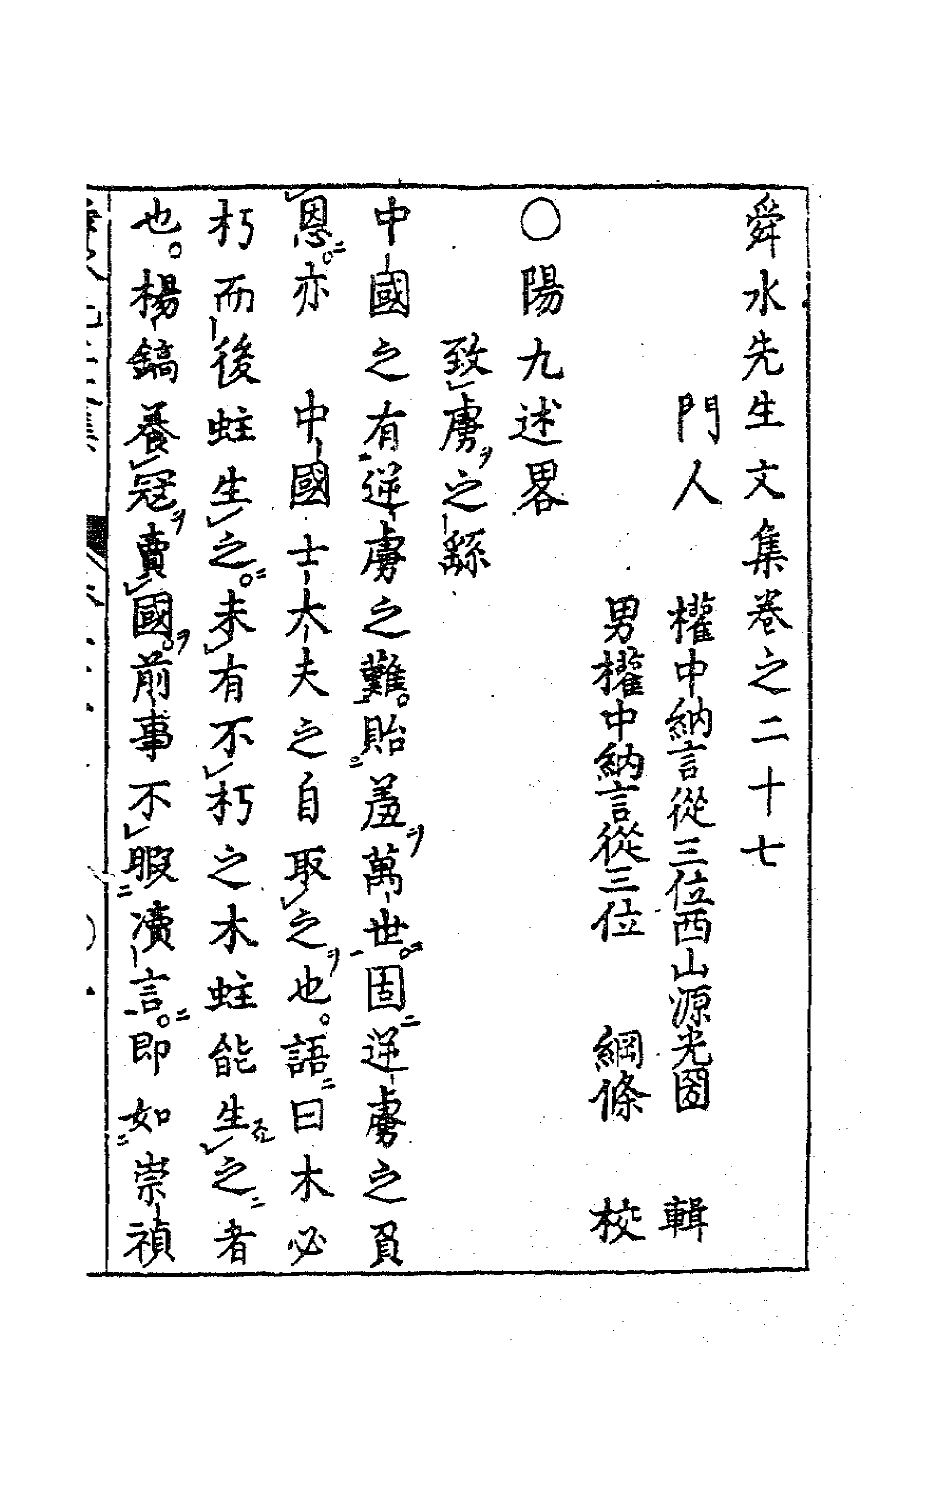 舜水先生文集卷之二十七
門人　權中納言從三位西山源光圀　輯
男權中納言從三位　綱條　校
○陽九述畧
致虜之繇
中國之有逆虜之難。貽羞萬世。固逆虜之負
恩。亦　中國士大夫之自取之也。語曰木必
朽而後蛀生之。未有不朽之木蛀能生之者
也。楊鎬養冦賣國。前事不暇瀆言。即如崇禎